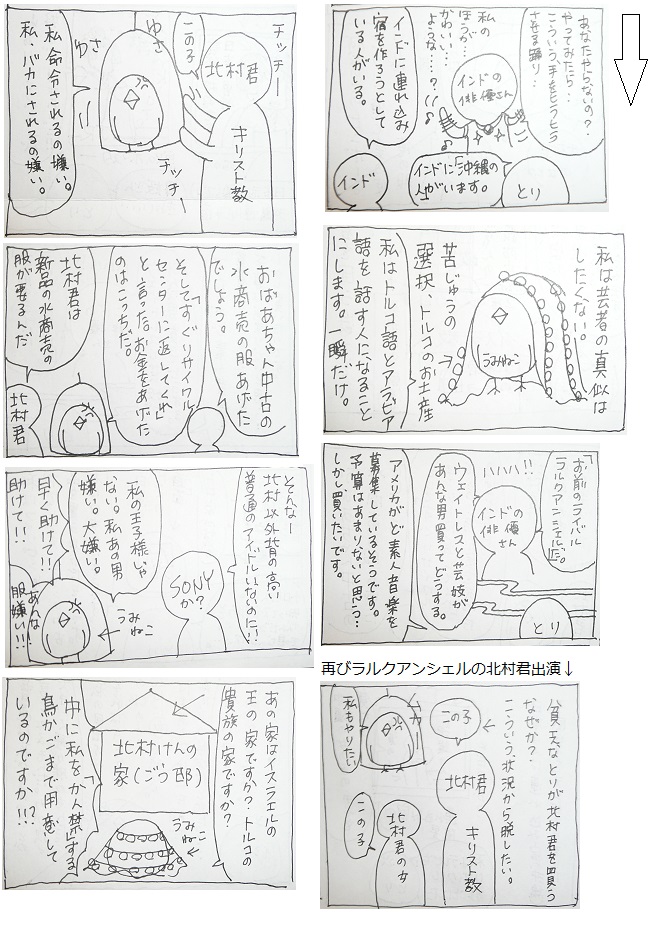 あなたやらないの?
やってみたら…
こういう手をヒラヒラ
させる踊り…
私の
ほうが
かわいい…
ような…?
インドの
俳優さん
インドに連れ込み
宿を作ろうとして
いる人がいる。
インドに「沖縄の
人」がいます。
インド
とり
私は芸者の真似は
したくない。
苦じゅうの
選択、トルコのお土産
うみねこ
私はトルコ語とアラビア
語を話す人になること
にします。一瞬だけ。
「お前のライバル
ラルクアンシェルだ。」
ハハハ!!
インドの
俳優
さん
ウェイトレスと芸妓が
あんな男買ってどうする。
アメリカがど素人音楽を
募集しているそうです。
予算はあまりないと思う…
しかし買いたいです。
とり
再びラルクアンシェルの北村君出演↓
貧乏なとりが北村君を買う
なぜか?
こういう状況から脱したい。
この子
北村君
キリスト教
私もやりたい
この子
北村君の女
チッチー
この子
北村君
キリスト教
ゆさ
ゆさ
チッチー
私命令されるの嫌い。
私、バカにされるの嫌い。
おばあちゃん中古の
水商売の服あげた
でしょう。
そして「すぐリサイクル
センターに返してくれ」
と言った。お金をあげた
のはこっちだ。
北村君は
新品の水商売の
服が要るんだ
北村君
そんなー
北村以外背の高い
普通のアイドルいないのに!!
SONY
か?
私の王子様じゃ
ない!私あの男
嫌い。大嫌い。
早く助けて!!
助けて!!
うみねこ
あんな
服嫌い!!!
あの家はイスラエルの
王の家ですか?トルコの
貴族の家ですか?
北村けんの
家(ごう邸)
うみねこ
中に私を「かん禁」する
鳥かごまで用意して
いるのですか!!?